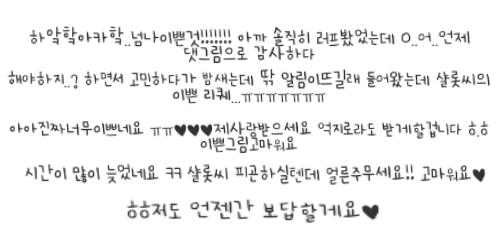 하악학아카학..넘나이쁜것!!!!!!! 아까 솔직히 러프봤었는데 ㅇ..어..언제
댓그림으로 감사하다
해야하지..? 하면서 고민하다가 밤새는데 딲 알림이뜨길래 들어왔는데 샬롯씨의
이쁜 리퀘...ㅠㅠㅠㅠㅠㅠㅠ
아아진짜너무이쁘네요 ㅠㅠ♥♥♥제사랑받으세요 억지로라도 받게할겁니다 ㅎ.ㅎ
이쁜그림고마워요
시간이 많이 늦었네요 ㅋㅋ 샬롯씨 피곤하실텐데 얼른주무세요!! 고마워요♥
ㅎㅎ저도 언젠간 보답할게요♥